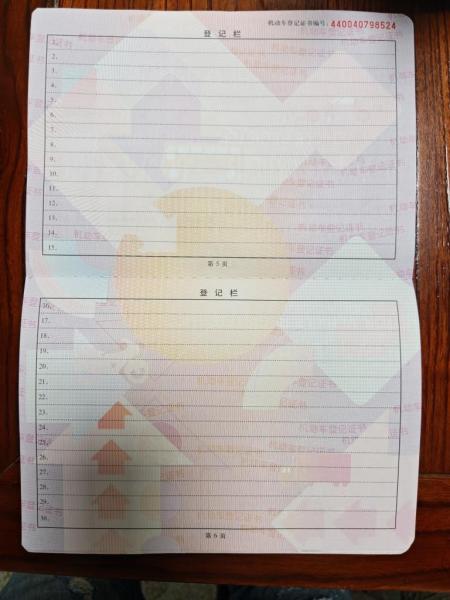 机动车登记证书编号：440040798524
登记栏
1.
2.
3.
4.
5.
6.
7.
8.
9.
10.
11.
12.
13.
14.
15.
第 5 页
登记栏
16.
17.
18.
19.
20.
21.
22.
23.
24.
25.
26.
27.
28.
29.
30.
第 6 页